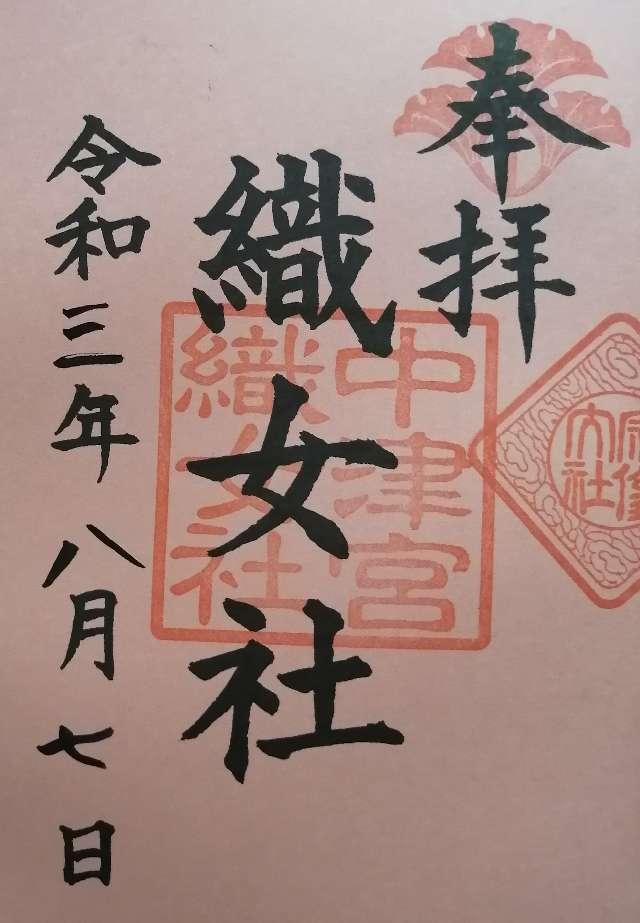 奉拝
中津宮
織女社
織女社
令和三年八月七日